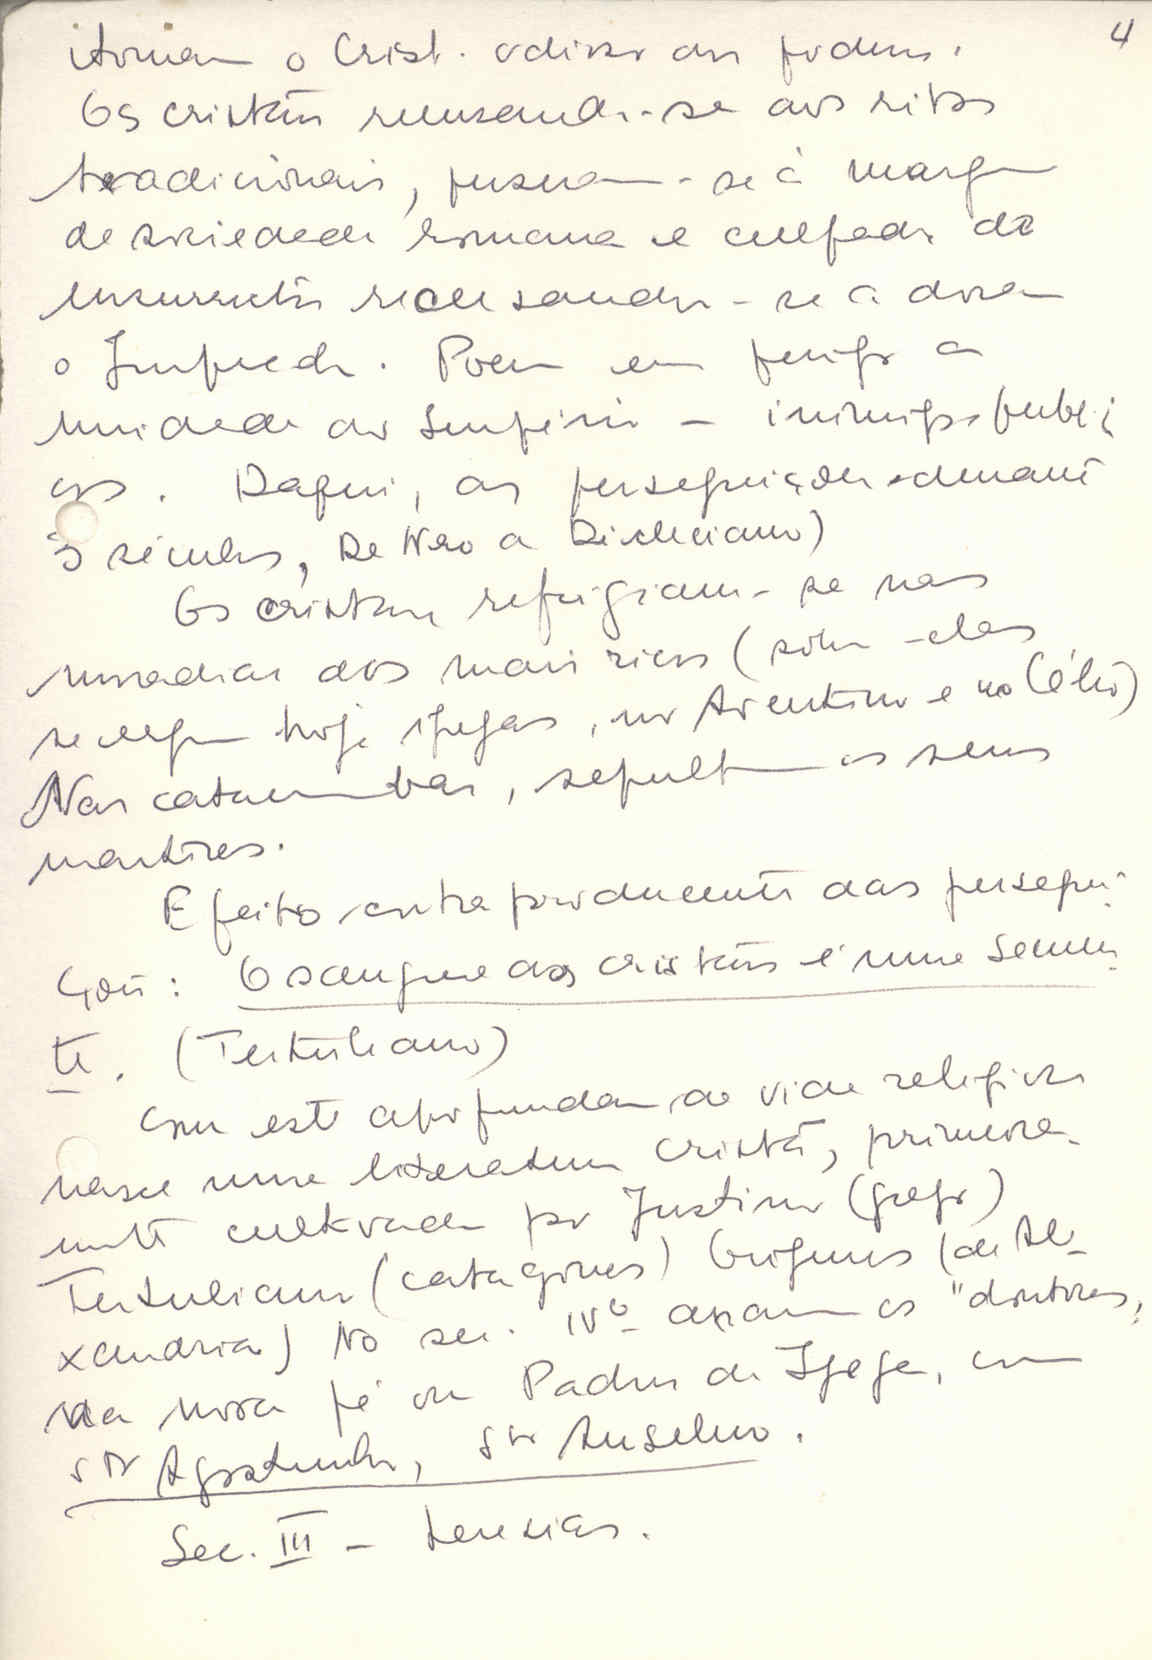 4
tornam o Crist. odioso aos judeus.
Os cristãos recusando-se aos ritos
tradicionais, puseram-se à margem
da sociedade romana e culpados de
insurreição recusando-se a adorar
o Imperador. Poem em perigo a
unidade do Império – inimigos públi
cos. Daqui, as perseguições durante
3 séculos, De Nero a Diocleciano)
Os cristãos refugiam-se nas
moradias dos mais ricos (sobre elas
se erguem hoje igrejas, no Aventino e no Célio)
Nas catacumbas, sepultam os seus
martires.
Efeito contraproducente das persegui-
ções: O sangue dos cristãos é uma semen
te. (Tertuliano)
Com este aprofundar da vida religiosa
nasce uma literatura cristã, primeira-
mente cultivada por Justino (grego)
Tertuliano (cartaginês) Origenes (de Ale-
xandria) No sec. IVº os "doutores"
da nova fé ou Padres da Igreja, com
Stº Agostinho, Stº Anselmo.
Sec. III – heresias.